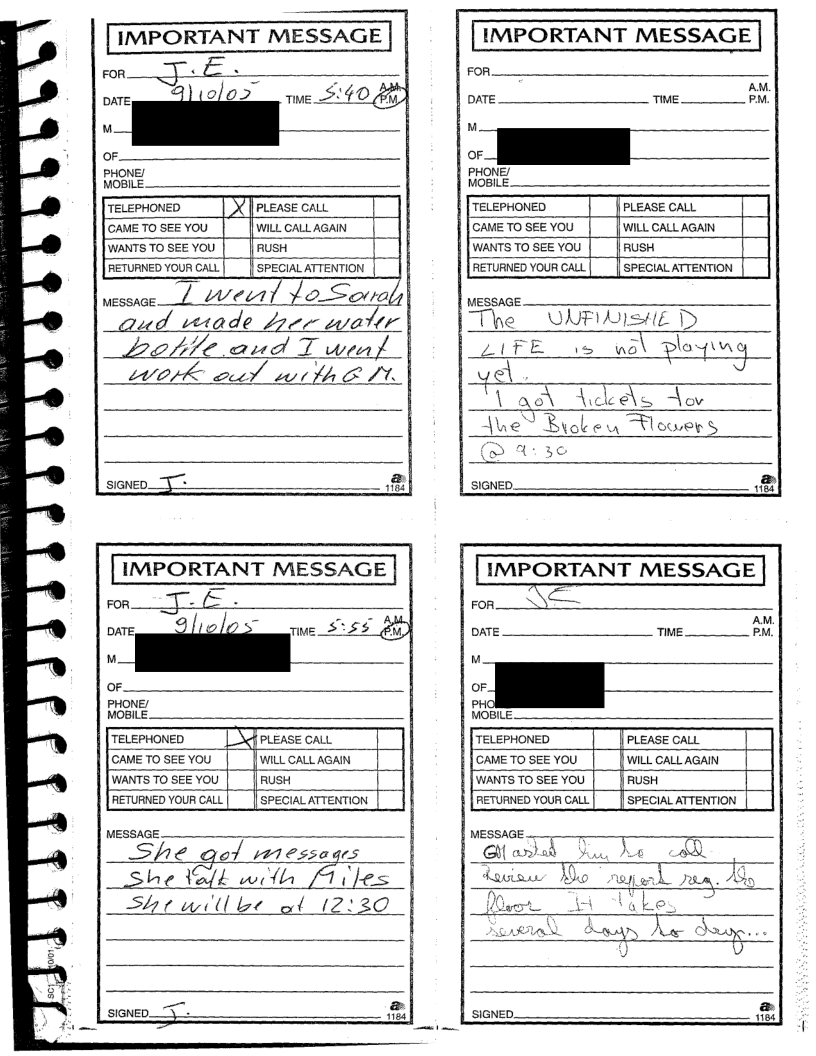 IMPORTANT MESSAGE
FOR J.E.
DATE 9/10/05 TIME 5:40 A.M. P.M.
M
OF
PHONE/
MOBILE
TELEPHONED X PLEASE CALL
CAME TO SEE YOU WILL CALL AGAIN
WANTS TO SEE YOU RUSH
RETURNED YOUR CALL SPECIAL ATTENTION
MESSAGE I went to Sarah
and made her water
bottle and I went
work out with G M.
SIGNED J.
a
1184
IMPORTANT MESSAGE
FOR
A.M.
DATE TIME P.M.
M
OF
PHONE/
MOBILE
TELEPHONED PLEASE CALL
CAME TO SEE YOU WILL CALL AGAIN
WANTS TO SEE YOU RUSH
RETURNED YOUR CALL SPECIAL ATTENTION
MESSAGE
The UNFINISHED
LIFE is not playing
yet.
I got tickets for
the Broken Flowers
@ 9:30
SIGNED
a
1184
IMPORTANT MESSAGE
FOR J.E.
DATE 9/10/05 TIME 5:55 A.M. P.M.
M
OF
PHONE/
MOBILE
TELEPHONED X PLEASE CALL
CAME TO SEE YOU WILL CALL AGAIN
WANTS TO SEE YOU RUSH
RETURNED YOUR CALL SPECIAL ATTENTION
MESSAGE
She got messages
She talk with Miles
She will be at 12:30
SIGNED J.
a
1184
SC1 10/01
IMPORTANT MESSAGE
FOR JE
A.M.
DATE TIME P.M.
M
OF
PHO
MOBILE
TELEPHONED PLEASE CALL
CAME TO SEE YOU WILL CALL AGAIN
WANTS TO SEE YOU RUSH
RETURNED YOUR CALL SPECIAL ATTENTION
MESSAGE
GM asked him to call
Review the report reg. the
floor It takes
several days to
SIGNED
a
1184